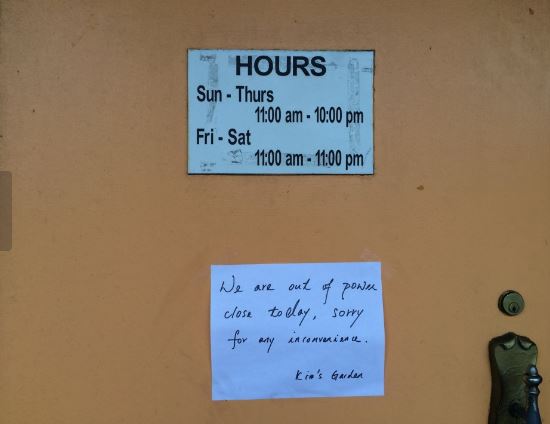 HOURS
Sun - Thurs
11:00 am - 10:00 pm
Fri - Sat
11:00 am - 11:00 pm
We are out of power
close today, sorry
for any inconvenience.
Kim's Garden